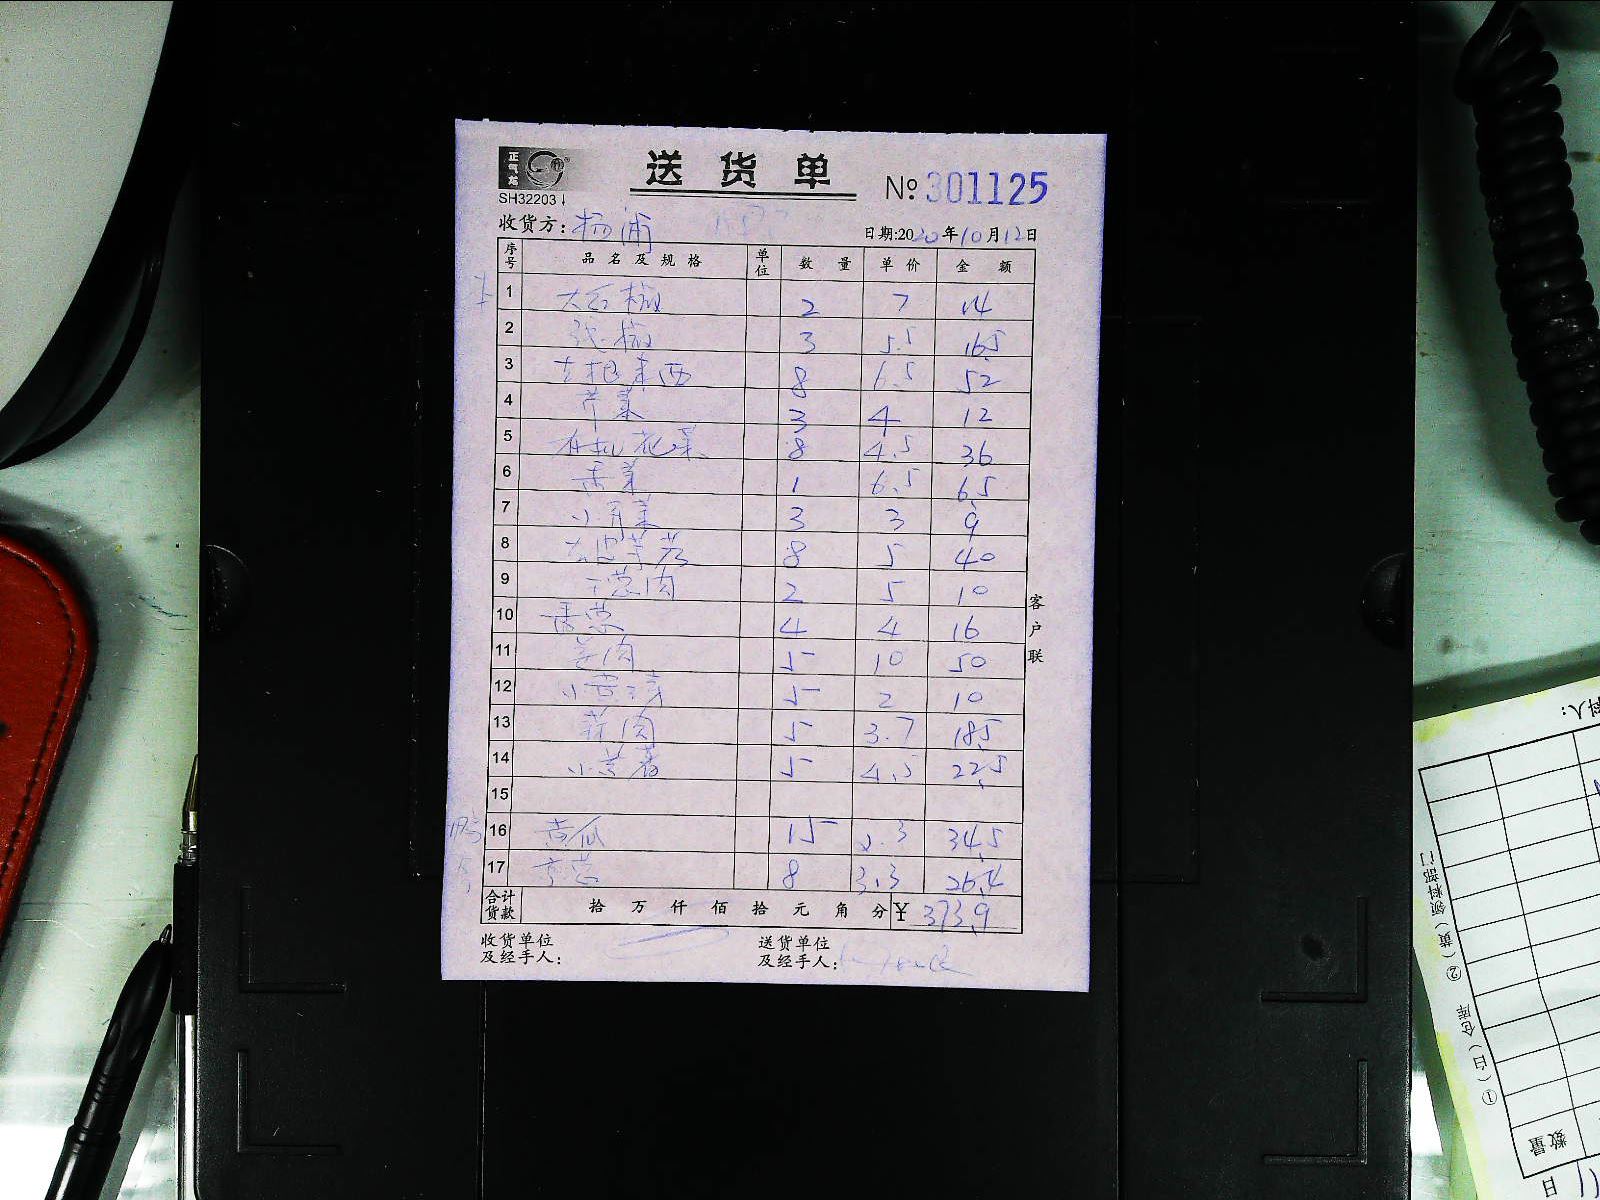 正气龙
送货单
SH32203
№301125
收货方: 杨浦
日期:2020年10月12日
序号 品名及规格 单位 数量 单价 金额
1 大石椒 2 7 14
2 3 5.5 16.5
3 8 6.5 52
4 芹菜 3 4 12
5 有机花菜 8 4.5 36
6 香菜 1 6.5 6.5
7 小青菜 3 3 9
8 8 5 40
9 干葱肉 2 5 10
10 香葱 4 4 16
11 姜肉 5 10 50
12 5 2 10
13 蒜肉 5 3.7 18.5
14 5 4.5 22.5
15
16 黄瓜 15 2.3 34.5
17 8 3.3 26.4
合计货款 拾万仟佰拾元角分 ¥ 373.9
收货单位及经手人:
送货单位及经手人:
客户联
料人:
①(白)仓库 ②(黄)领料部门
数量
日